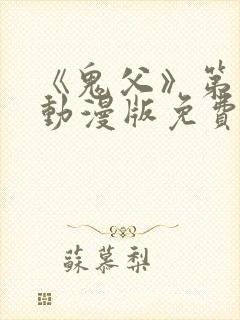 《鬼父》第
動漫版免費
蘇慕梨